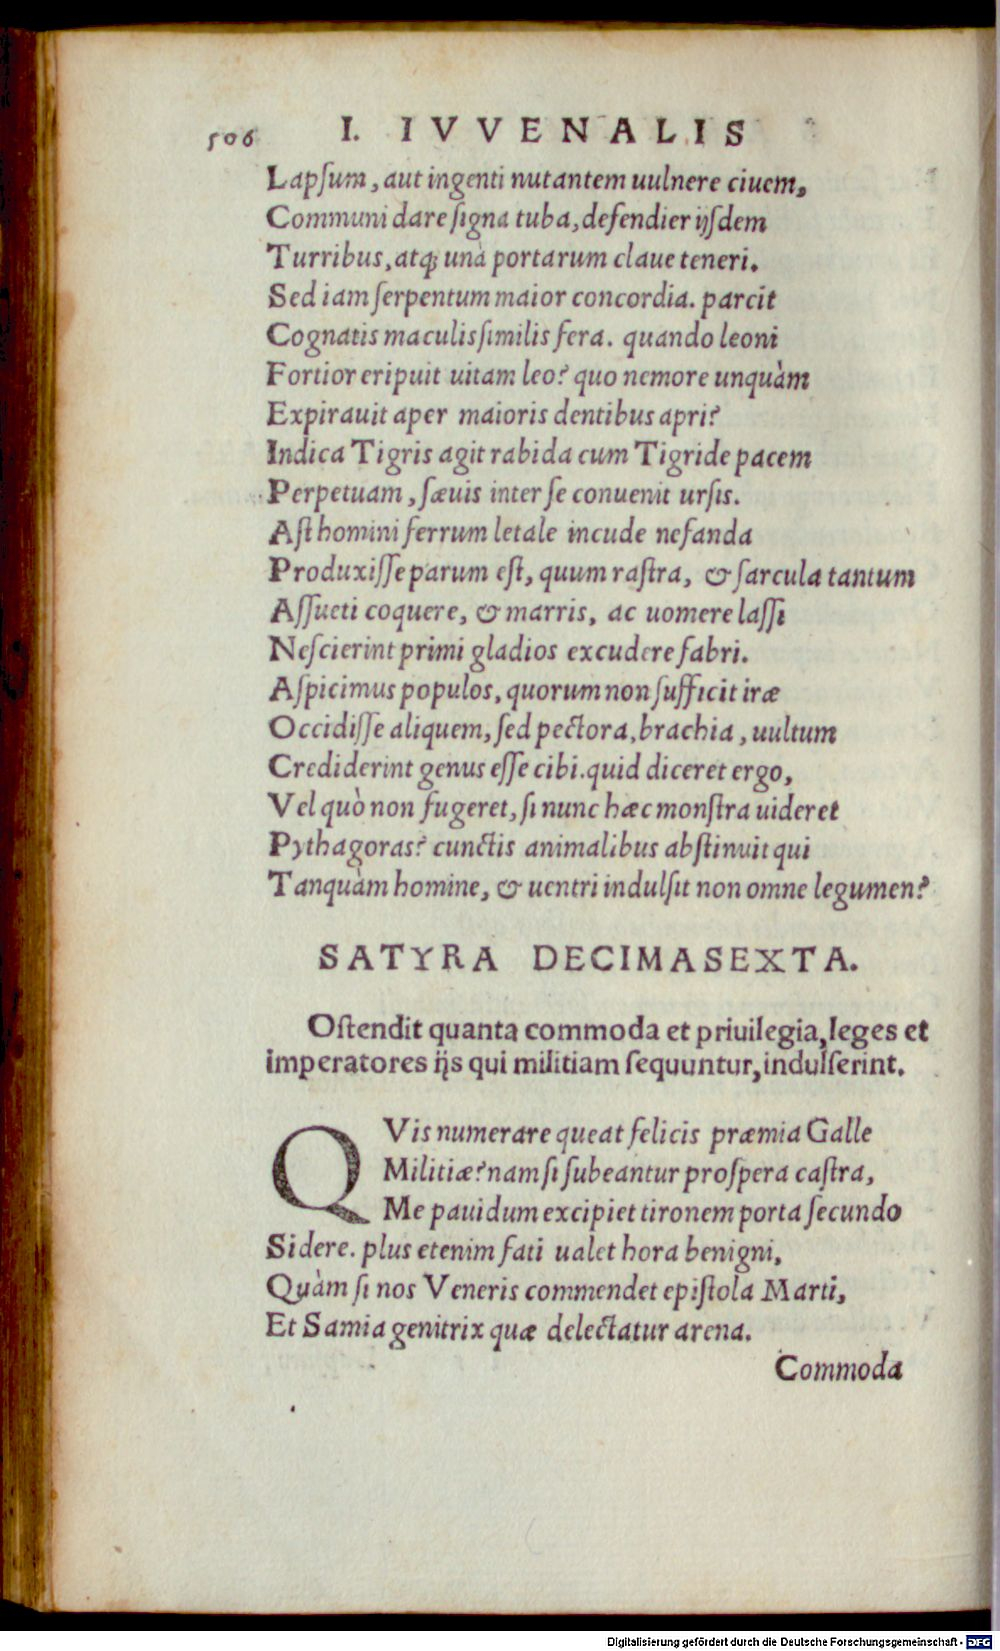 506 I. IVVENALIS
Lapſum, aut ingenti nutantem uulnere ciuem,
Communi dare ſigna tuba, defendier ijſdem
Turribus, atq; unà portarum claue teneri.
Sed iam ſerpentum maior concordia. parcit
Cognatis maculis ſimilis fera. quando leoni
Fortior eripuit uitam leo? quo nemore unquàm
Expirauit aper maioris dentibus apri?
Indica Tigris agit rabida cum Tigride pacem
Perpetuam, ſæuis inter ſe conuenit urſis.
Aſt homini ferrum letale incude nefanda
Produxiſſe parum eſt, quum raſtra, & ſarcula tantum
Aſſueti coquere, & marris, ac uomere laſſi
Neſcierint primi gladios excudere fabri.
Aſpicimus populos, quorum non ſufficit iræ
Occidiſſe aliquem, ſed pectora, brachia, uultum
Crediderint genus eſſe cibi. quid diceret ergo,
Vel quò non fugeret, ſi nunc hæc monſtra uideret
Pythagoras? cunctis animalibus abſtinuit qui
Tanquàm homine, & uentri indulſit non omne legumen?
SATYRA DECIMASEXTA.
Oſtendit quanta commoda et priuilegia, leges et
imperatores ijs qui militiam ſequuntur, indulſerint.
QVis numerare queat felicis præmia Galle
Militiæ? nam ſi ſubeantur proſpera caſtra,
Me pauidum excipiet tironem porta ſecundo
Sidere. plus etenim fati ualet hora benigni,
Quàm ſi nos Veneris commendet epiſtola Marti,
Et Samia genitrix quæ delectatur arena.
Commoda
Digitalisierung gefördert durch die Deutsche Forschungsgemeinschaft - DFG